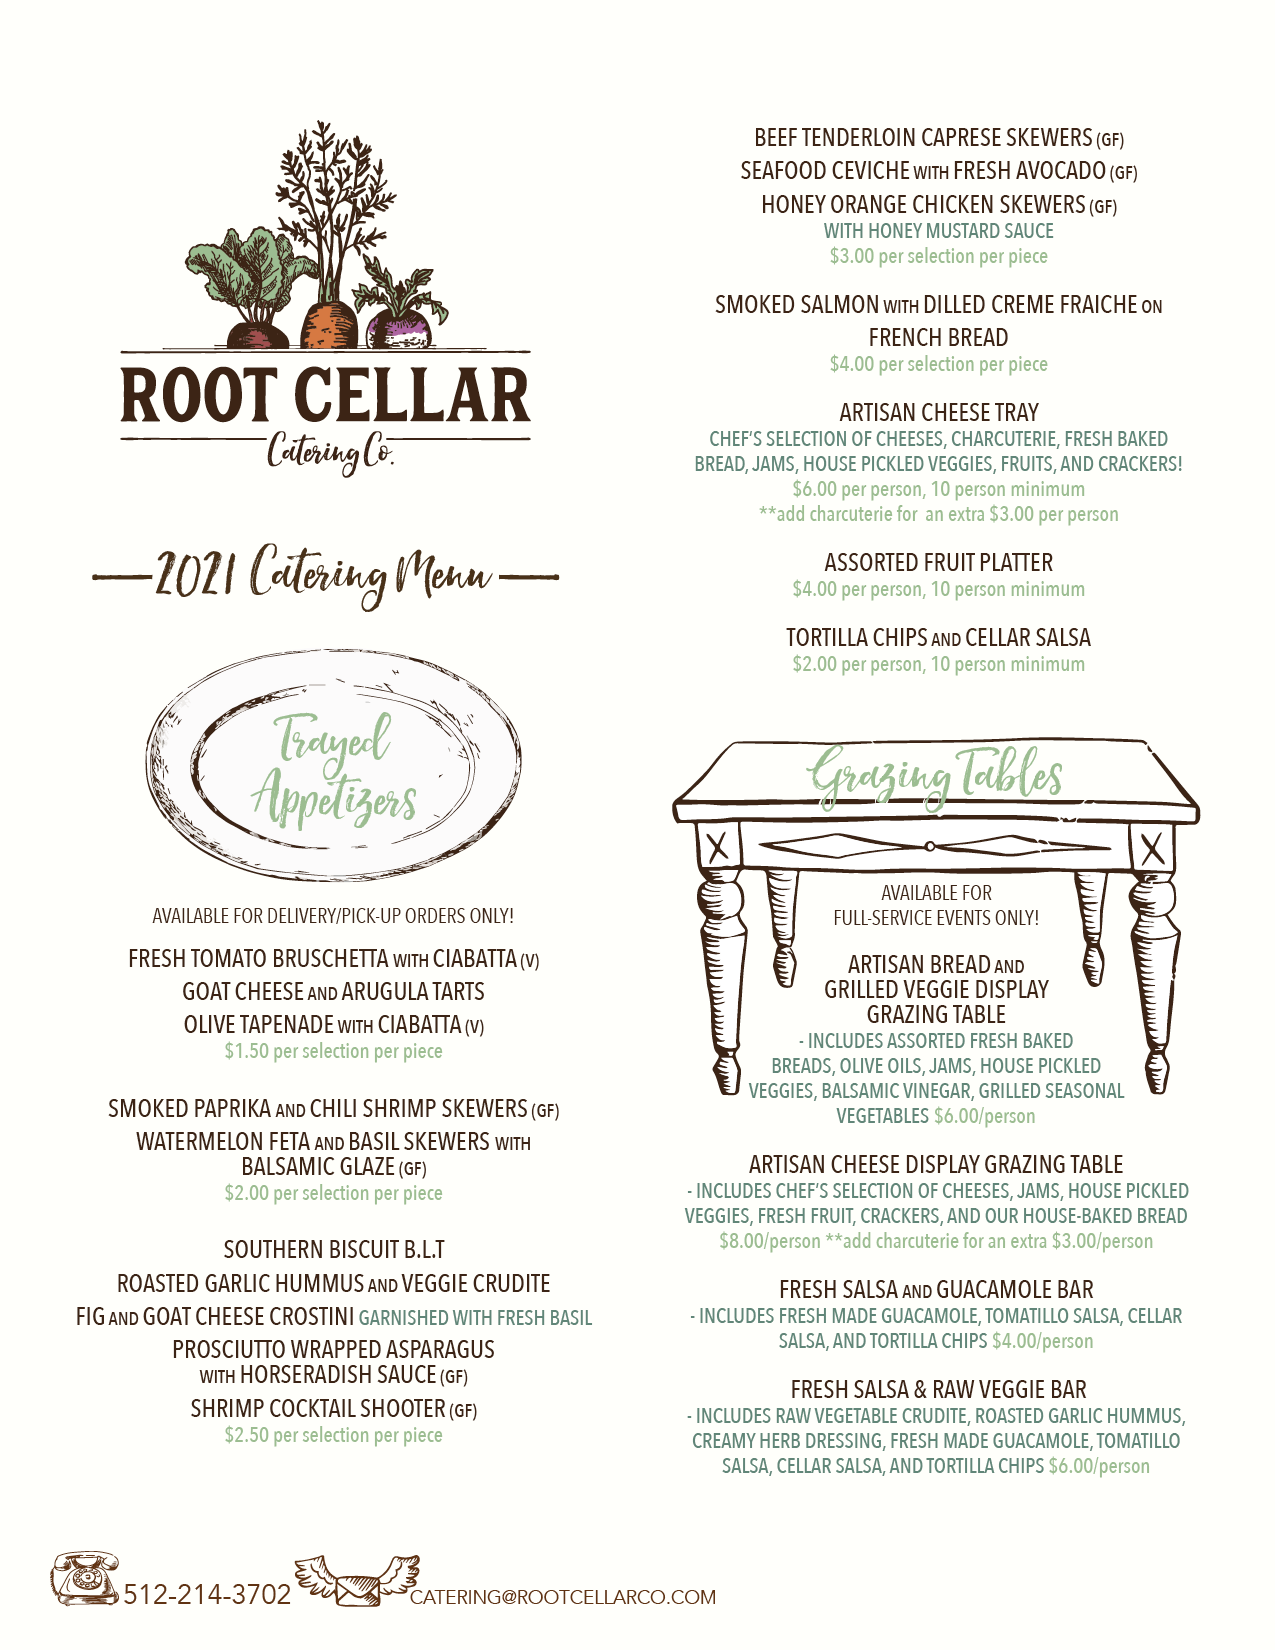 ROOT CELLAR
Catering Co.
2021 Catering Menu
Trayed
Appetizers
AVAILABLE FOR DELIVERY/PICK-UP ORDERS ONLY!
FRESH TOMATO BRUSCHETTA WITH CIABATTA (V)
GOAT CHEESE AND ARUGULA TARTS
OLIVE TAPENADE WITH CIABATTA (V)
$1.50 per selection per piece
SMOKED PAPRIKA AND CHILI SHRIMP SKEWERS (GF)
WATERMELON FETA AND BASIL SKEWERS WITH
BALSAMIC GLAZE (GF)
$2.00 per selection per piece
SOUTHERN BISCUIT B.L.T
ROASTED GARLIC HUMMUS AND VEGGIE CRUDITE
FIG AND GOAT CHEESE CROSTINI GARNISHED WITH FRESH BASIL
PROSCIUTTO WRAPPED ASPARAGUS
WITH HORSERADISH SAUCE (GF)
SHRIMP COCKTAIL SHOOTER (GF)
$2.50 per selection per piece
BEEF TENDERLOIN CAPRESE SKEWERS (GF)
SEAFOOD CEVICHE WITH FRESH AVOCADO (GF)
HONEY ORANGE CHICKEN SKEWERS (GF)
WITH HONEY MUSTARD SAUCE
$3.00 per selection per piece
SMOKED SALMON WITH DILLED CREME FRAICHE ON
FRENCH BREAD
$4.00 per selection per piece
ARTISAN CHEESE TRAY
CHEF'S SELECTION OF CHEESES, CHARCUTERIE, FRESH BAKED
BREAD, JAMS, HOUSE PICKLED VEGGIES, FRUITS, AND CRACKERS!
$6.00 per person, 10 person minimum
**add charcuterie for an extra $3.00 per person
ASSORTED FRUIT PLATTER
$4.00 per person, 10 person minimum
TORTILLA CHIPS AND CELLAR SALSA
$2.00 per person, 10 person minimum
Grazing Tables
AVAILABLE FOR
FULL-SERVICE EVENTS ONLY!
ARTISAN BREAD AND
GRILLED VEGGIE DISPLAY
GRAZING TABLE
- INCLUDES ASSORTED FRESH BAKED
BREADS, OLIVE OILS, JAMS, HOUSE PICKLED
VEGGIES, BALSAMIC VINEGAR, GRILLED SEASONAL
VEGETABLES $6.00/person
ARTISAN CHEESE DISPLAY GRAZING TABLE
- INCLUDES CHEF'S SELECTION OF CHEESES, JAMS, HOUSE PICKLED
VEGGIES, FRESH FRUIT, CRACKERS, AND OUR HOUSE-BAKED BREAD
$8.00/person **add charcuterie for an extra $3.00/person
FRESH SALSA AND GUACAMOLE BAR
- INCLUDES FRESH MADE GUACAMOLE, TOMATILLO SALSA, CELLAR
SALSA, AND TORTILLA CHIPS $4.00/person
FRESH SALSA & RAW VEGGIE BAR
- INCLUDES RAW VEGETABLE CRUDITE, ROASTED GARLIC HUMMUS,
CREAMY HERB DRESSING, FRESH MADE GUACAMOLE, TOMATILLO
SALSA, CELLAR SALSA, AND TORTILLA CHIPS $6.00/person
512-214-3702
CATERING@ROOTCELLARCO.COM